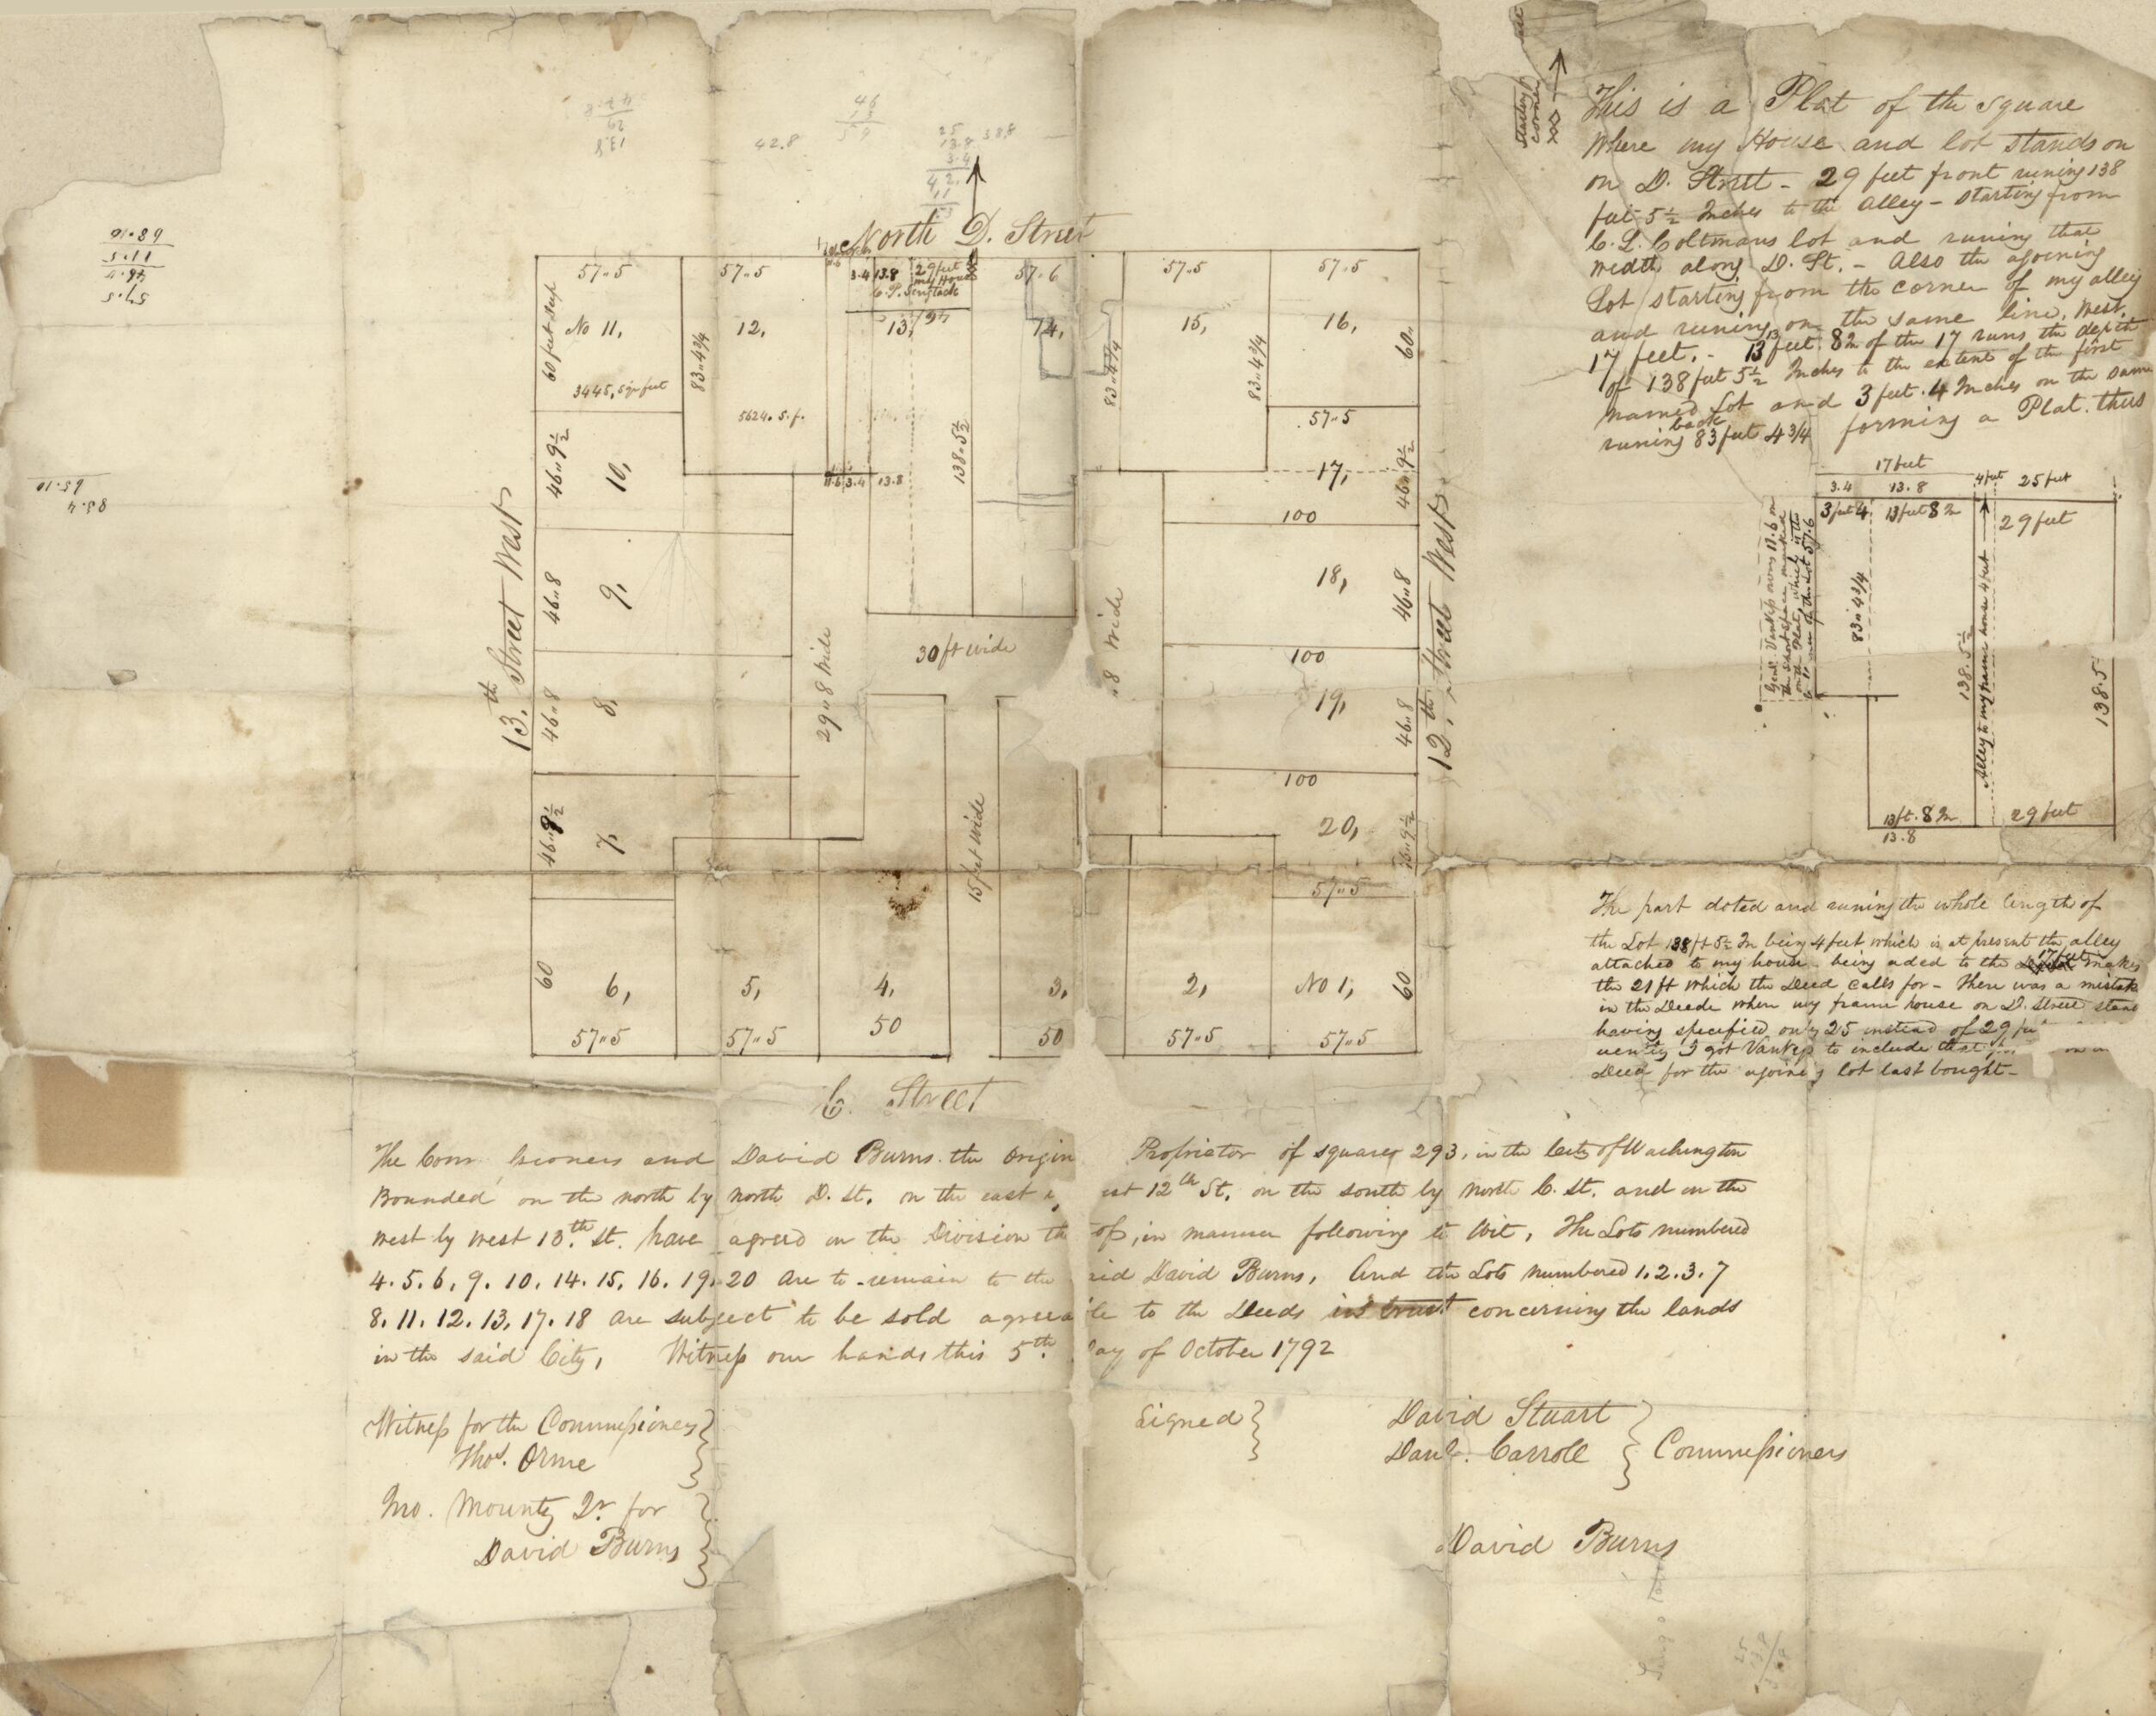 starting corner
This is a Plat of the square
where my House and lot stands on
on D. Street - 29 feet front runing 138
feet 5½ Inches to the Alley - starting from
C. L. Coltmans lot and runing that
width along D. St. - Also the ajoining
Lot starting from the corner of my alley
and runing on the same line, West,
17 feet. - 13 feet. 8 In of the 17 runs the depth
of 138 feet 5½ Inches to the extent of the first
named Lot and 3 feet. 4 Inches on the same
runing back 83 feet 4 3/4 forming a Plat. thus
17 feet
3.4 13.8 4 feet 25 feet
3 feet 4 13 feet 8 In 29 feet
Genl. VanNess owns 11.6 in
83 " 4 3/4
138. 5½
Alley to my frame house 4 feet
138.5
13 ft. 8 In 29 feet
13.8
The part doted and runing the whole length of
the Lot 138 ft 5½ In being 4 feet which is at present the alley
attached to my house - being aded to the 17 feet makes
the 21 ft which the Deed calls for - There was a mistake
in the Deede when my frame house on D. Street stand
having specified only 25 instead of 29 fe
I got VanNess to include that
Deed for the ajoining lot last bought -
68.10
11.5
46.9
57.5
65.10
85.4
13.8
29
42.8
46
13
59
42.8
25
13.8
3.4
42.
11
53
58.8
North D. Street
57"5 57"5 11.6 3.4 13.8 29 feet my House 57"6 57"5 57"5
C. P. Sengstack
60 feet deep No 11, 12, 13, 46 14, 15, 16, 60"
83"4 3/4 83"4 3/4 83"4 3/4
3445, sqr feet 5624. s.f.
57"5
46"9½ 10, 11.6 3.4 13.8 138"5½ 17, 46"9½
100
46"8 9, 18, 46"8
30 ft wide 100
46"8 8, 29"8 Wide "8 Wide 19, 46"8
100
46"9½ 7, 15 feet wide 20, 46"9½
57"5
60 6, 5, 4, 3, 2, No 1, 60
57"5 57"5 50 50 57"5 57"5
13th. Street West
12th. Street West
C. Street
The Com sioners and David Burns the Origin Proprietor of square 293, in the City of Washington
Bounded on the north by north D. St. on the east est 12th St. on the south by North C. St. and on the
west by west 13th. St. have agreed on the Division the of, in manner following to Wit, The Lots numbered
4. 5. 6. 9. 10. 14. 15. 16. 19. 20 are to remain to the aid David Burns, And the Lots numbered 1. 2. 3. 7
8. 11. 12. 13. 17. 18 are subject to be sold agreeable to the Deeds in trust concerning the lands
in the said City, Witness our hands this 5th. Day of October 1792
Witness for the Commissioners
Thos. Orme
Jno. Mountz Jr. for
David Burns
Signed
David Stuart
Danl. Carroll
Commissioners
David Burns